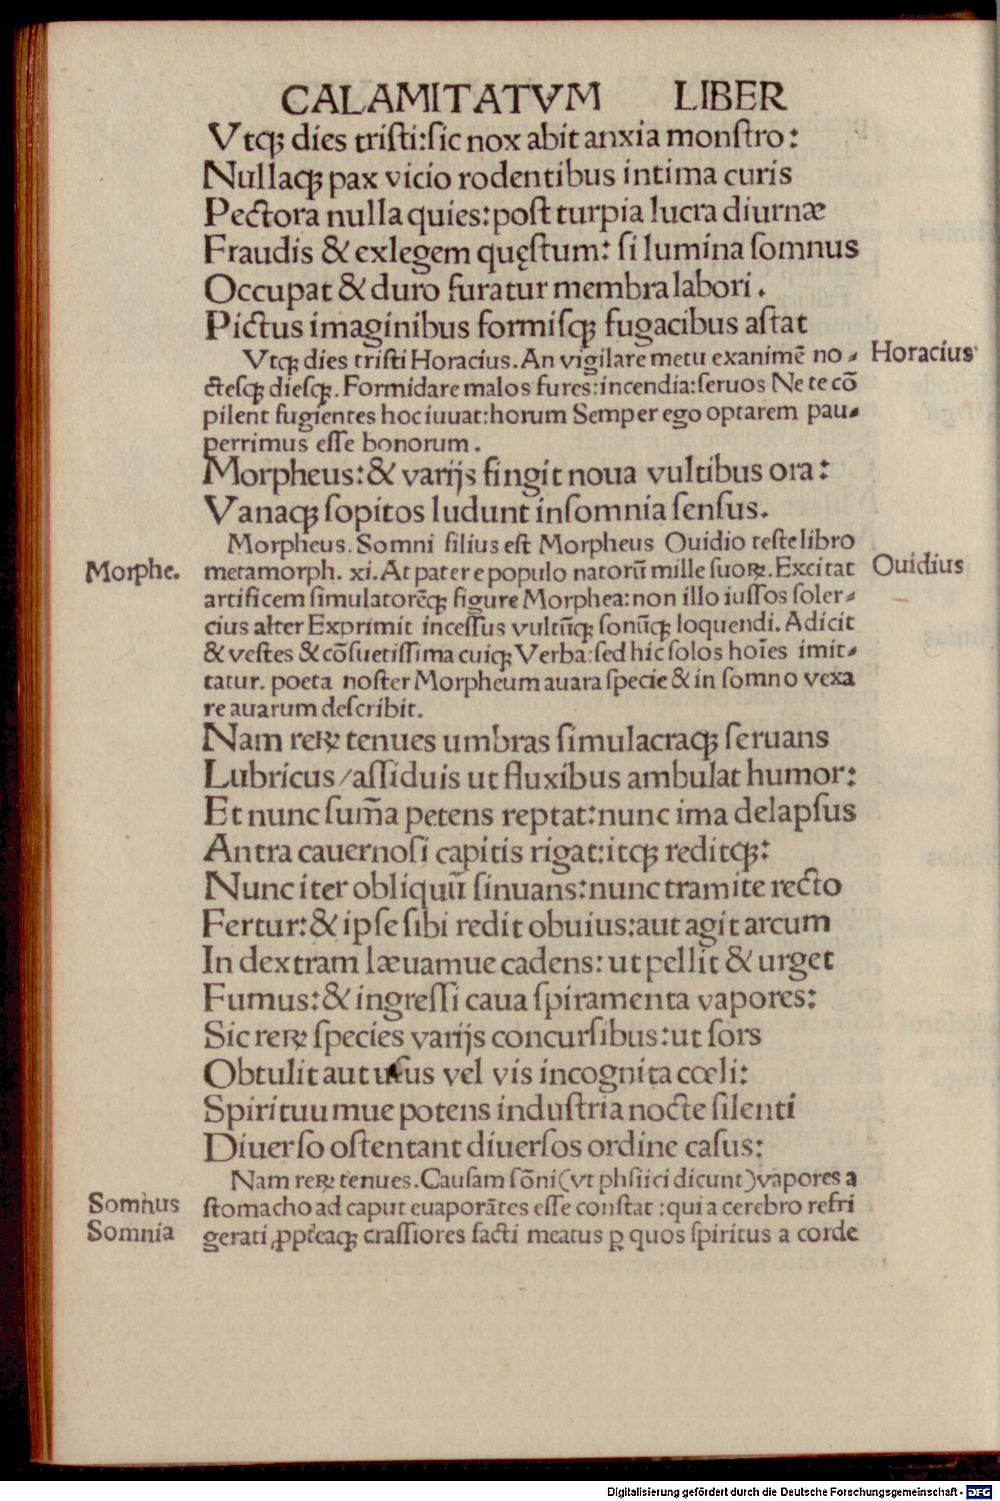 CALAMITATVM LIBER
Vtqꝫ dies tristi:sic nox abit anxia monstro:
Nullaqꝫ pax vicio rodentibus intima curis
Pectora nulla quies:post turpia lucra diurnæ
Fraudis & exlegem quęstum: si lumina somnus
Occupat & duro furatur membra labori.
Pictus imaginibus formisqꝫ fugacibus astat
Vtqꝫ dies tristi Horacius. An vigilare metu exanimē no-
Horacius
ctesqꝫ diesqꝫ. Formidare malos fures:incendia:seruos Ne te cō
pilent fugientes hoc iuuat:horum Semper ego optarem pau-
perrimus esse bonorum.
Morpheus:& varijs fingit noua vultibus ora:
Vanaqꝫ sopitos ludunt insomnia sensus.
Morpheus. Somni filius est Morpheus Ouidio teste libro
Morphe.
metamorph. xi. At pater e populo natorū mille suoꝝ. Excitat
Ouidius
artificem simulatorēqꝫ figure Morphea:non illo iussos soler-
cius alter Exprimit incessus vultūqꝫ sonūqꝫ loquendi. Adicit
& vestes & cōsuetissima cuiqꝫ Verba:sed hic solos hoīes imit-
tatur. poeta noster Morpheum auara specie & in somno vexa
re auarum describit.
Nam reꝝ tenues umbras simulacraqꝫ seruans
Lubricus/assiduis ut fluxibus ambulat humor:
Et nunc sum̄a petens reptat:nunc ima delapsus
Antra cauernosi capitis rigat:itqꝫ reditqꝫ:
Nunc iter obliquū sinuans:nunc tramite recto
Fertur:& ipse sibi redit obuius:aut agit arcum
In dextram læuamue cadens: ut pellit & urget
Fumus:& ingressi caua spiramenta vapores:
Sic reꝝ species varijs concursibus:ut sors
Obtulit aut usus vel vis incognita cœli:
Spirituumue potens industria nocte silenti
Diuerso ostentant diuersos ordine casus:
Nam reꝝ tenues. Causam sōni (vt phsiici dicunt) vapores a
Somnus
stomacho ad caput euaporātes esse constat :qui a cerebro refri
Somnia
gerati ꝓpt̄eaqꝫ crassiores facti meatus ꝑ quos spiritus a corde
Digitalisierung gefördert durch die Deutsche Forschungsgemeinschaft - DFG